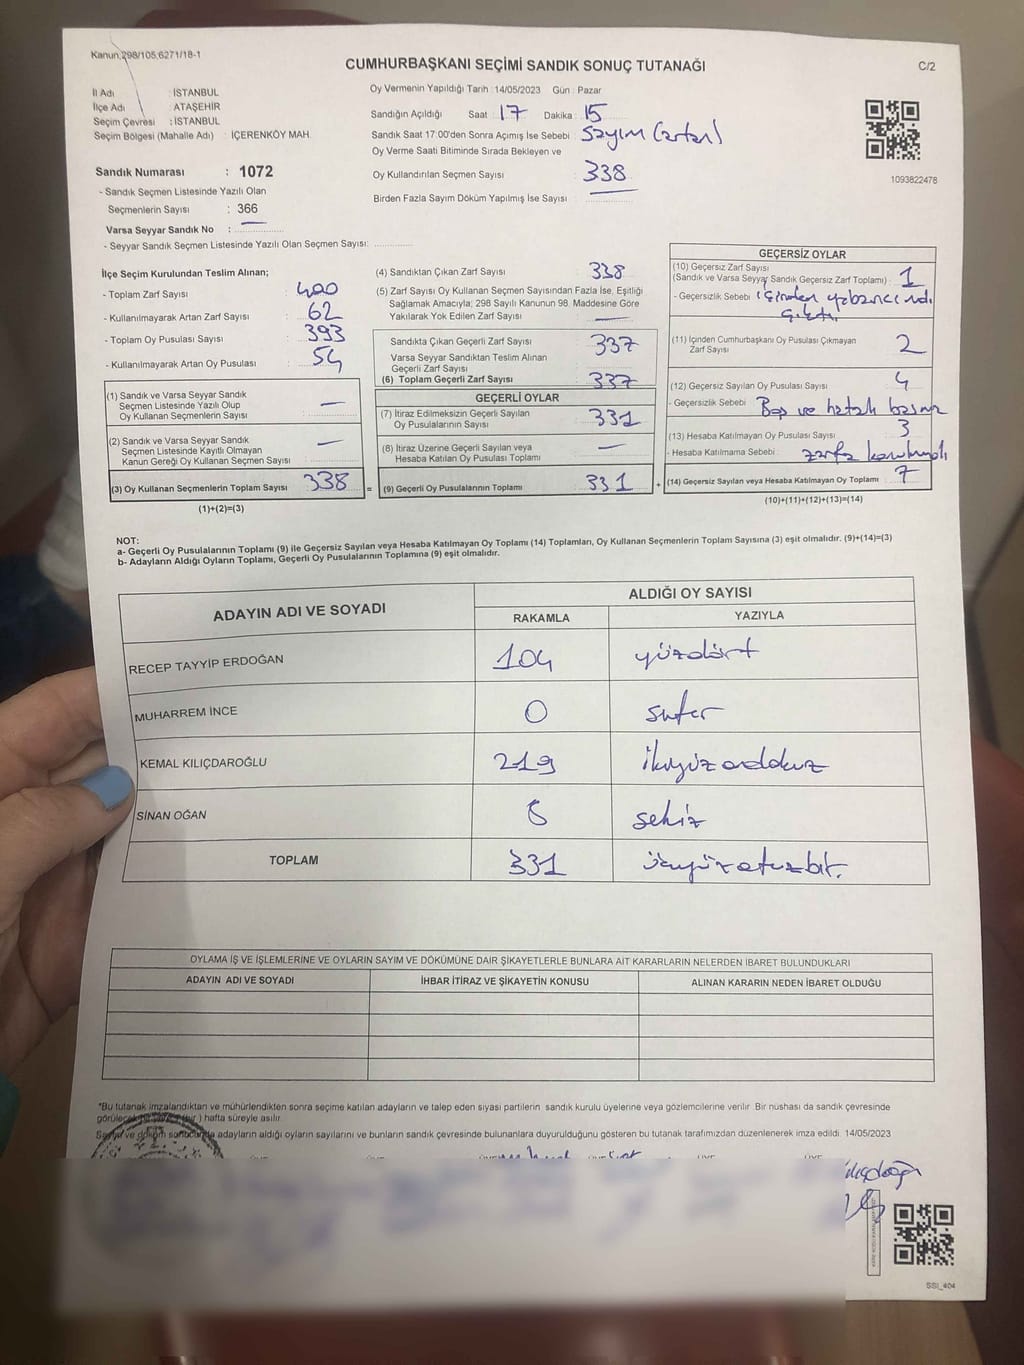 Kanun 298/105,6271/18-1
CUMHURBAŞKANI SEÇİMİ SANDIK SONUÇ TUTANAĞI
C/2
İl Adı : İSTANBUL
İlçe Adı : ATAŞEHİR
Seçim Çevresi : İSTANBUL
Seçim Bölgesi (Mahalle Adı) : İÇERENKÖY MAH.
Oy Vermenin Yapıldığı Tarih : 14/05/2023 Gün : Pazar
Sandığın Açıldığı Saat : 17 Dakika : 15
Sandık Saat 17:00'den Sonra Açımış İse Sebebi : Sayım (artan)
Oy Verme Saati Bitiminde Sırada Bekleyen ve
Oy Kullandırılan Seçmen Sayısı : 338
Birden Fazla Sayım Döküm Yapılmış İse Sayısı : —
1093822478
Sandık Numarası : 1072
- Sandık Seçmen Listesinde Yazılı Olan
Seçmenlerin Sayısı : 366
Varsa Seyyar Sandık No : —
- Seyyar Sandık Seçmen Listesinde Yazılı Olan Seçmen Sayısı:
İlçe Seçim Kurulundan Teslim Alınan;
- Toplam Zarf Sayısı : 400
- Kullanılmayarak Artan Zarf Sayısı : 62
- Toplam Oy Pusulası Sayısı : 393
- Kullanılmayarak Artan Oy Pusulası : 54
(1) Sandık ve Varsa Seyyar Sandık
Seçmen Listesinde Yazılı Olup
Oy Kullanan Seçmenlerin Sayısı : —
(2) Sandık ve Varsa Seyyar Sandık
Seçmen Listesinde Kayıtlı Olmayan
Kanun Gereği Oy Kullanan Seçmen Sayısı : —
(3) Oy Kullanan Seçmenlerin Toplam Sayısı : 338
(1)+(2)=(3)
(4) Sandıktan Çıkan Zarf Sayısı : 338
(5) Zarf Sayısı Oy Kullanan Seçmen Sayısından Fazla İse, Eşitliği
Sağlamak Amacıyla; 298 Sayılı Kanunun 98. Maddesine Göre
Yakılarak Yok Edilen Zarf Sayısı : —
Sandıkta Çıkan Geçerli Zarf Sayısı : 337
Varsa Seyyar Sandıktan Teslim Alınan
Geçerli Zarf Sayısı
(6) Toplam Geçerli Zarf Sayısı : 337
GEÇERLİ OYLAR
(7) İtiraz Edilmeksizin Geçerli Sayılan
Oy Pusulalarının Sayısı : 331
(8) İtiraz Üzerine Geçerli Sayılan veya
Hesaba Katılan Oy Pusulası Toplamı : —
= (9) Geçerli Oy Pusulalarının Toplamı : 331 +
GEÇERSİZ OYLAR
(10) Geçersiz Zarf Sayısı
(Sandık ve Varsa Seyyar Sandık Geçersiz Zarf Toplamı) : 1
- Geçersizlik Sebebi : içinden yabancı
çıktı.
(11) İçinden Cumhurbaşkanı Oy Pusulası Çıkmayan
Zarf Sayısı : 2
(12) Geçersiz Sayılan Oy Pusulası Sayısı : 4
- Geçersizlik Sebebi : Boş ve hatalı
(13) Hesaba Katılmayan Oy Pusulası Sayısı : 3
- Hesaba Katılmama Sebebi : zarfa
(14) Geçersiz Sayılan veya Hesaba Katılmayan Oy Toplamı : 7
(10)+(11)+(12)+(13)=(14)
NOT:
a- Geçerli Oy Pusulalarının Toplamı (9) ile Geçersiz Sayılan veya Hesaba Katılmayan Oy Toplamı (14) Toplamları, Oy Kullanan Seçmenlerin Toplam Sayısına (3) eşit olmalıdır. (9)+(14)=(3)
b- Adayların Aldığı Oyların Toplamı, Geçerli Oy Pusulalarının Toplamına (9) eşit olmalıdır.
ADAYIN ADI VE SOYADI ALDIĞI OY SAYISI
RAKAMLA YAZIYLA
RECEP TAYYİP ERDOĞAN 104 yüzdört
MUHARREM İNCE 0 sıfır
KEMAL KILIÇDAROĞLU 219 ikiyüzondokuz
SİNAN OĞAN 8 sekiz
TOPLAM 331 üçyüzotuzbir.
OYLAMA İŞ VE İŞLEMLERİNE VE OYLARIN SAYIM VE DÖKÜMÜNE DAİR ŞİKAYETLERLE BUNLARA AİT KARARLARIN NELERDEN İBARET BULUNDUKLARI
ADAYIN ADI VE SOYADI İHBAR İTİRAZ VE ŞİKAYETİN KONUSU ALINAN KARARIN NEDEN İBARET OLDUĞU
*Bu tutanak imzalandıktan ve mühürlendikten sonra seçime katılan adayların ve talep eden siyasi partilerin sandık kurulu üyelerine veya gözlemcilerine verilir. Bir nüshası da sandık çevresinde
hafta süreyle asılır.
Sayım ve döküm sonucunda adayların aldığı oyların sayılarını ve bunların sandık çevresinde bulunanlara duyurulduğunu gösteren bu tutanak tarafımızdan düzenlenerek imza edildi. 14/05/2023
SSI_404